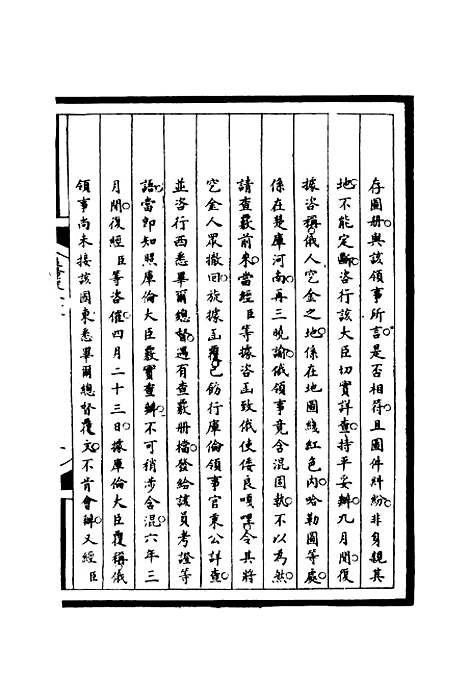 存圖册與該領事所言是否相符且圖件糾紛非身親其
地不能定斷咨行該大臣切實詳查持平妥辦九月間復
據咨稱俄人穵金之地係在地圖綫紅色內哈勒圖等處
係在楚庫河南再三曉諭俄領事竟含混固執不以爲然
請查覈前來當經臣等據咨函致俄使倭良嘎哩令其將
穵金人眾撤回旋據函覆已飭行庫倫領事官秉公詳查
並咨行西悉畢爾總督遇有查覈册檔發給該員考證等
語當即知照庫倫大臣覈實查辦不可稍涉含混六年三
月間復經臣等咨催四月二十三日據庫倫大臣覆稱俄
領事尚未接該國東悉畢爾總督覆文不肯會辦又經臣